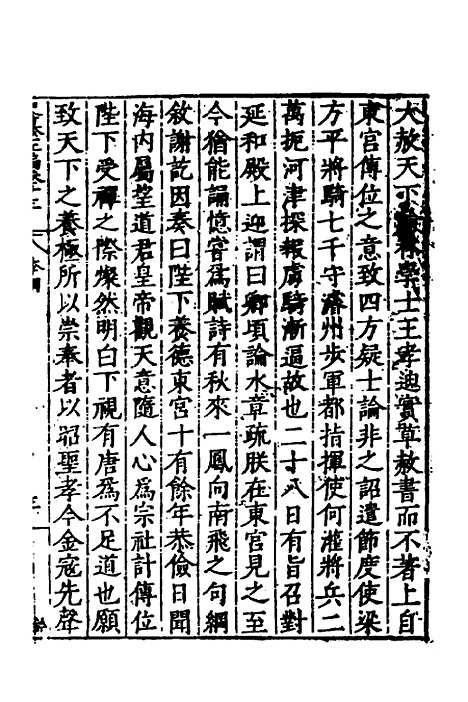 大赦天下翰林學士王孝迪實草赦書而不著上自
東宮傳位之意致四方疑士論非之詔遣節度使梁
方平將騎七千守濬州步軍都指揮使何灌將兵二
萬扼河津探報虜騎漸逼故也二十八日有旨召對
延和殿上迎謂曰卿頃論水章疏朕在東宮見之至
今猶能誦憶嘗爲賦詩有秋來一鳳向南飛之句綱
敘謝訖因奏曰陛下養德東宮十有餘年恭儉日聞
海内屬望道君皇帝觀天意隨人心爲宗社計傳位
陛下受禪之際燦然明白下視有唐爲不足道也願
致天下之養極所以崇奉者以昭聖孝今金寇先聲